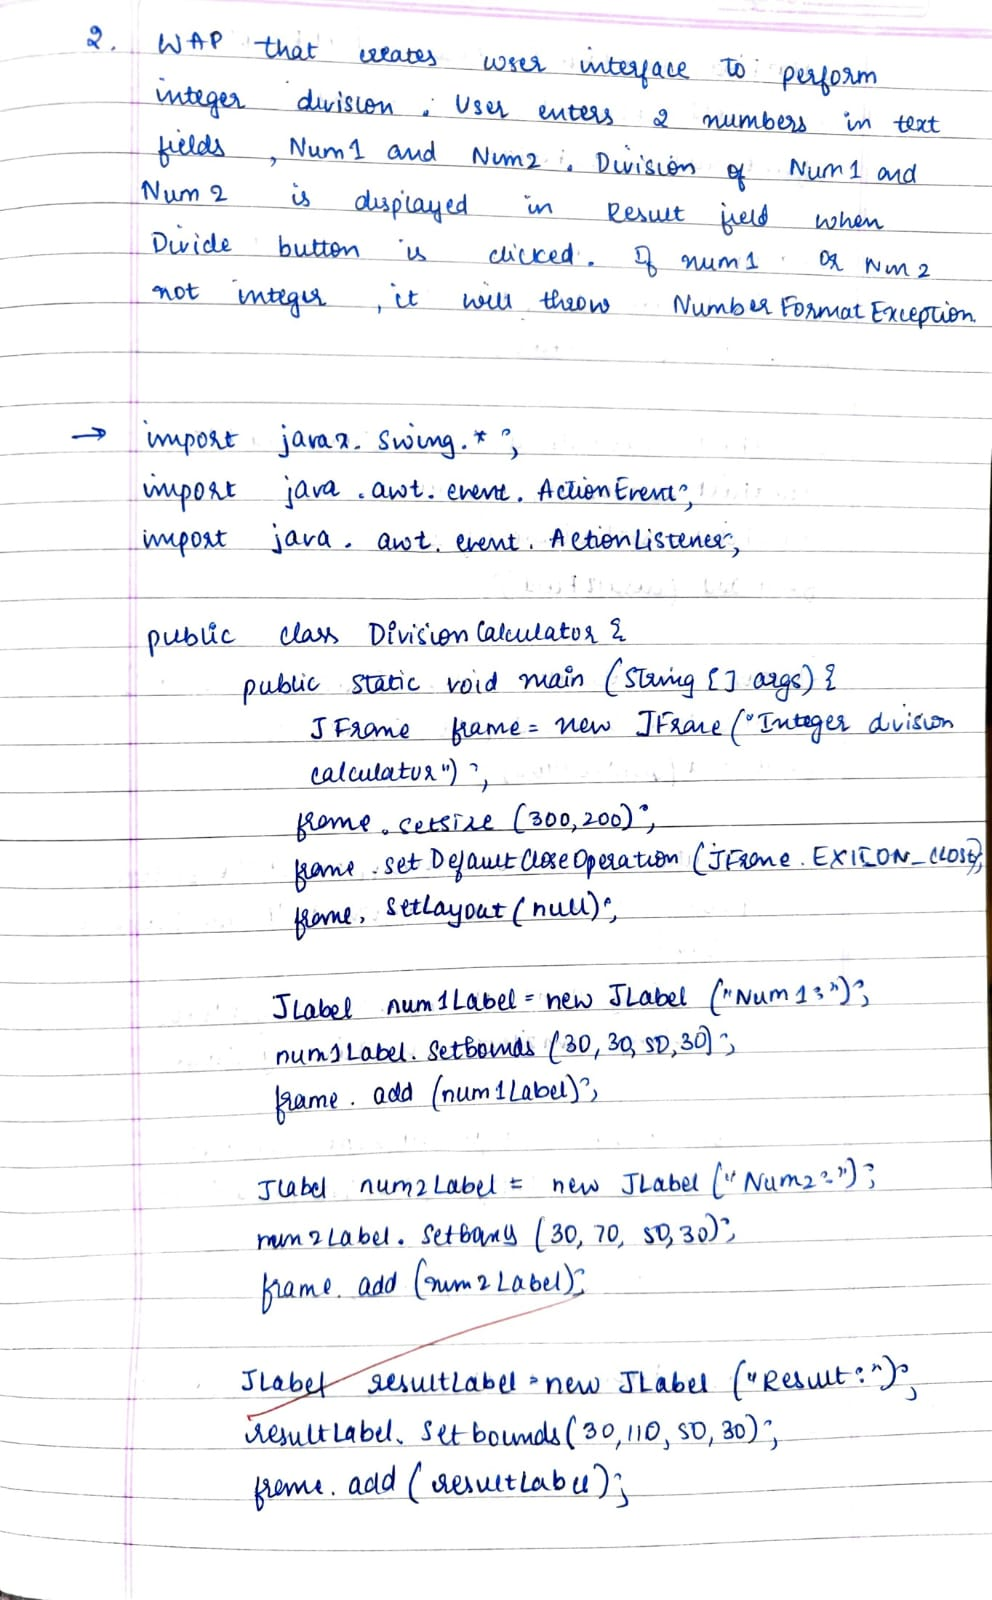 2. WAP that creates user interface to perform
integer division. User enters 2 numbers in text
fields, Num1 and Num2. Division of Num1 and
Num 2 is displayed in Result field when
Divide button is clicked. If num1 or Nm2
not integer, it will throw Number Format Exception.
→ import javax. Swing.*;
import java.awt.event.ActionEvent;
import java.awt.event.ActionListener;
public class Division Calculator {
public static void main (String [] args) {
JFrame frame = new JFrame ("Integer division
calculator");
frame.setsize (300,200);
frame.set Default Close Operation (JFrame.EXITON_CLOSE);
frame, SetLayout (null);
JLabel num1Label = new JLabel ("Num1:");
num1Label. Setbounds (30, 30, 50, 30);
frame. add (num1Label);
JLabel num2Label = new JLabel ("Num2:");
num2Label. Set (30, 70, 50, 30);
frame. add (num2Label);
JLabel resultLabel = new JLabel ("Result:");
resultLabel. Setbounds (30, 110, 50, 30);
frame. add (resultLabel);